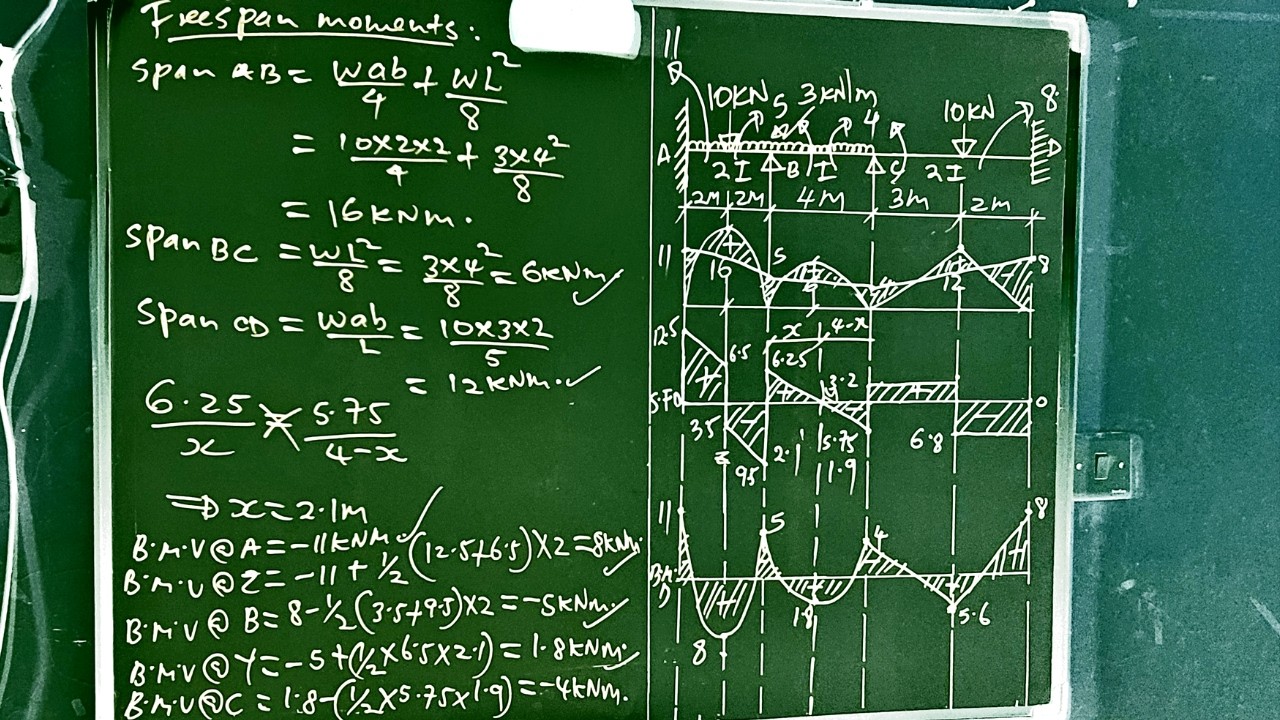 Freespan moments:
Span AB = Wab/4 + WL²/8
= 10×2×2/4 + 3×4²/8
= 16 KNm.
Span BC = WL²/8 = 3×4²/8 = 6KNm ✓
Span CD = Wab/L = 10×3×2/5
= 12KNm. ✓
6.25/x = 5.75/4-x
⇒ x = 2.1m
B.M.V@A = -11KNM ✓
B.M.V@Z = -11 + 1/2(12.5+6.5)×2 = 8KNm.
B.M.V@B = 8 - 1/2(3.5+9.5)×2 = -5KNm. ✓
B.M.V@Y = -5 + (1/2×6.5×2.1) = 1.8KNm. ✓
B.M.V@C = 1.8 - (1/2×5.75×1.9) = -4KNm.
11
10KN 5 3KN/m 4 10KN 8
A 2I B I C 2I D
2M 2M 4M 3m 2m
11 16 5 6 12 8
x 4-x
12.5 6.5 6.25 3.2
S.F.D 0
3.5 5.75 6.8
Z 9.5 2.1 1.9
11 5 4 8
B.M.D
1.8 5.6
8